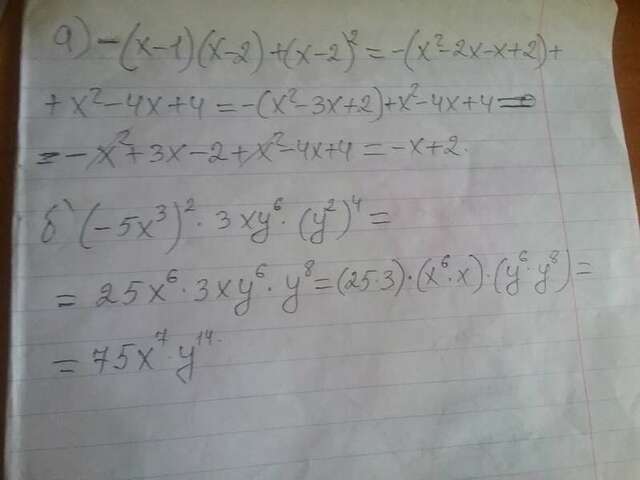 а) -(x-1)(x-2)+(x-2)² = -(x²-2x-x+2)+
+x²-4x+4 = -(x²-3x+2)+x²-4x+4 =
= -x²+3x-2+x²-4x+4 = -x+2.
б) (-5x³)²·3xy⁶·(y²)⁴ =
= 25x⁶·3xy⁶·y⁸ = (25·3)·(x⁶·x)·(y⁶·y⁸) =
= 75x⁷·y¹⁴.